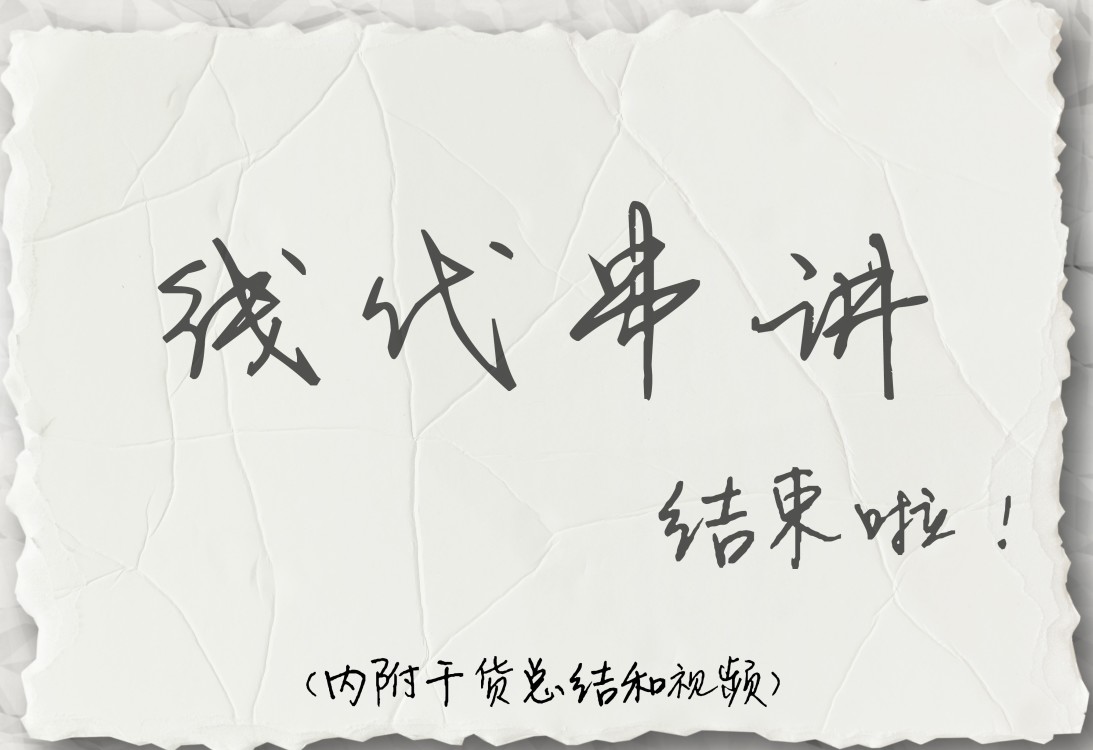 线代串讲
结束啦！
（内附干货总结和视频）